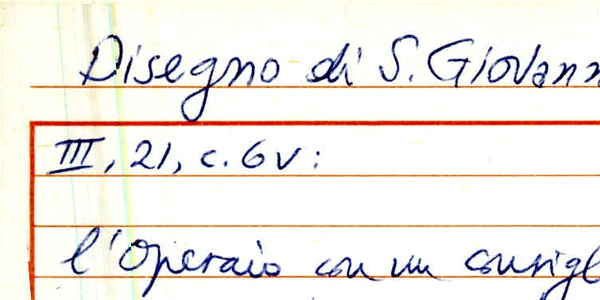 Disegno di S. Giovann
III, 21, c. 6v:
l'Operaio con un consigl